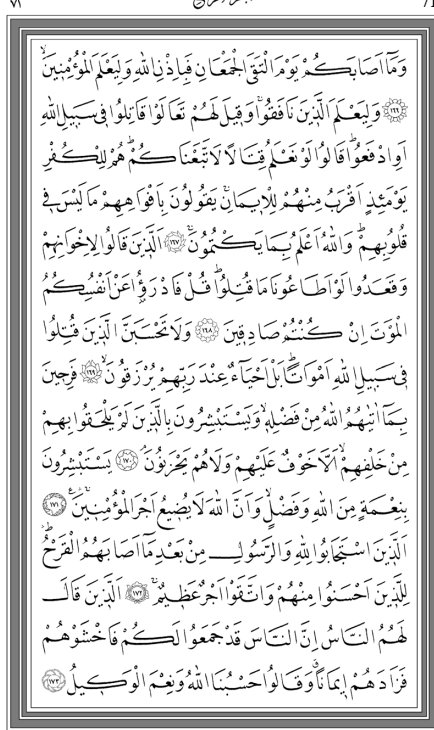 ٧١
وَمَٓا اَصَابَكُمْ يَوْمَ الْتَقَى الْجَمْعَانِ فَبِاِذْنِ اللّٰهِ وَلِيَعْلَمَ الْمُؤْمِن۪ينَۙ
﴿١٦٦﴾ وَلِيَعْلَمَ الَّذ۪ينَ نَافَقُواۚ وَق۪يلَ لَهُمْ تَعَالَوْا قَاتِلُوا ف۪ي سَب۪يلِ اللّٰهِ
اَوِ ادْفَعُواۜ قَالُوا لَوْ نَعْلَمُ قِتَالاً لَاتَّبَعْنَاكُمْۜ هُمْ لِلْكُفْرِ
يَوْمَئِذٍ اَقْرَبُ مِنْهُمْ لِلْا۪يمَانِۚ يَقُولُونَ بِاَفْوَاهِهِمْ مَا لَيْسَ ف۪ي
قُلُوبِهِمْۜ وَاللّٰهُ اَعْلَمُ بِمَا يَكْتُمُونَۚ ﴿١٦٧﴾ اَلَّذ۪ينَ قَالُوا لِاِخْوَانِهِمْ
وَقَعَدُوا لَوْ اَطَاعُونَا مَا قُتِلُواۜ قُلْ فَادْرَؤُ۫ا عَنْ اَنْفُسِكُمُ
الْمَوْتَ اِنْ كُنْتُمْ صَادِق۪ينَ ﴿١٦٨﴾ وَلَا تَحْسَبَنَّ الَّذ۪ينَ قُتِلُوا
ف۪ي سَب۪يلِ اللّٰهِ اَمْوَاتاًۜ بَلْ اَحْيَٓاءٌ عِنْدَ رَبِّهِمْ يُرْزَقُونَۙ ﴿١٦٩﴾ فَرِح۪ينَ
بِمَٓا اٰتٰيهُمُ اللّٰهُ مِنْ فَضْلِه۪ۙ وَيَسْتَبْشِرُونَ بِالَّذ۪ينَ لَمْ يَلْحَقُوا بِهِمْ
مِنْ خَلْفِهِمْۙ اَلَّا خَوْفٌ عَلَيْهِمْ وَلَا هُمْ يَحْزَنُونَۢ ﴿١٧٠﴾ يَسْتَبْشِرُونَ
بِنِعْمَةٍ مِنَ اللّٰهِ وَفَضْلٍۙ وَاَنَّ اللّٰهَ لَا يُض۪يعُ اَجْرَ الْمُؤْمِن۪ينَۚۛ ﴿١٧١﴾
اَلَّذ۪ينَ اسْتَجَابُوا لِلّٰهِ وَالرَّسُولِ مِنْ بَعْدِ مَٓا اَصَابَهُمُ الْقَرْحُۜۛ
لِلَّذ۪ينَ اَحْسَنُوا مِنْهُمْ وَاتَّقَوْا اَجْرٌ عَظ۪يمٌۚ ﴿١٧٢﴾ اَلَّذ۪ينَ قَالَ
لَهُمُ النَّاسُ اِنَّ النَّاسَ قَدْ جَمَعُوا لَكُمْ فَاخْشَوْهُمْ
فَزَادَهُمْ ا۪يمَاناًۗ وَقَالُوا حَسْبُنَا اللّٰهُ وَنِعْمَ الْوَك۪يلُ ﴿١٧٣﴾